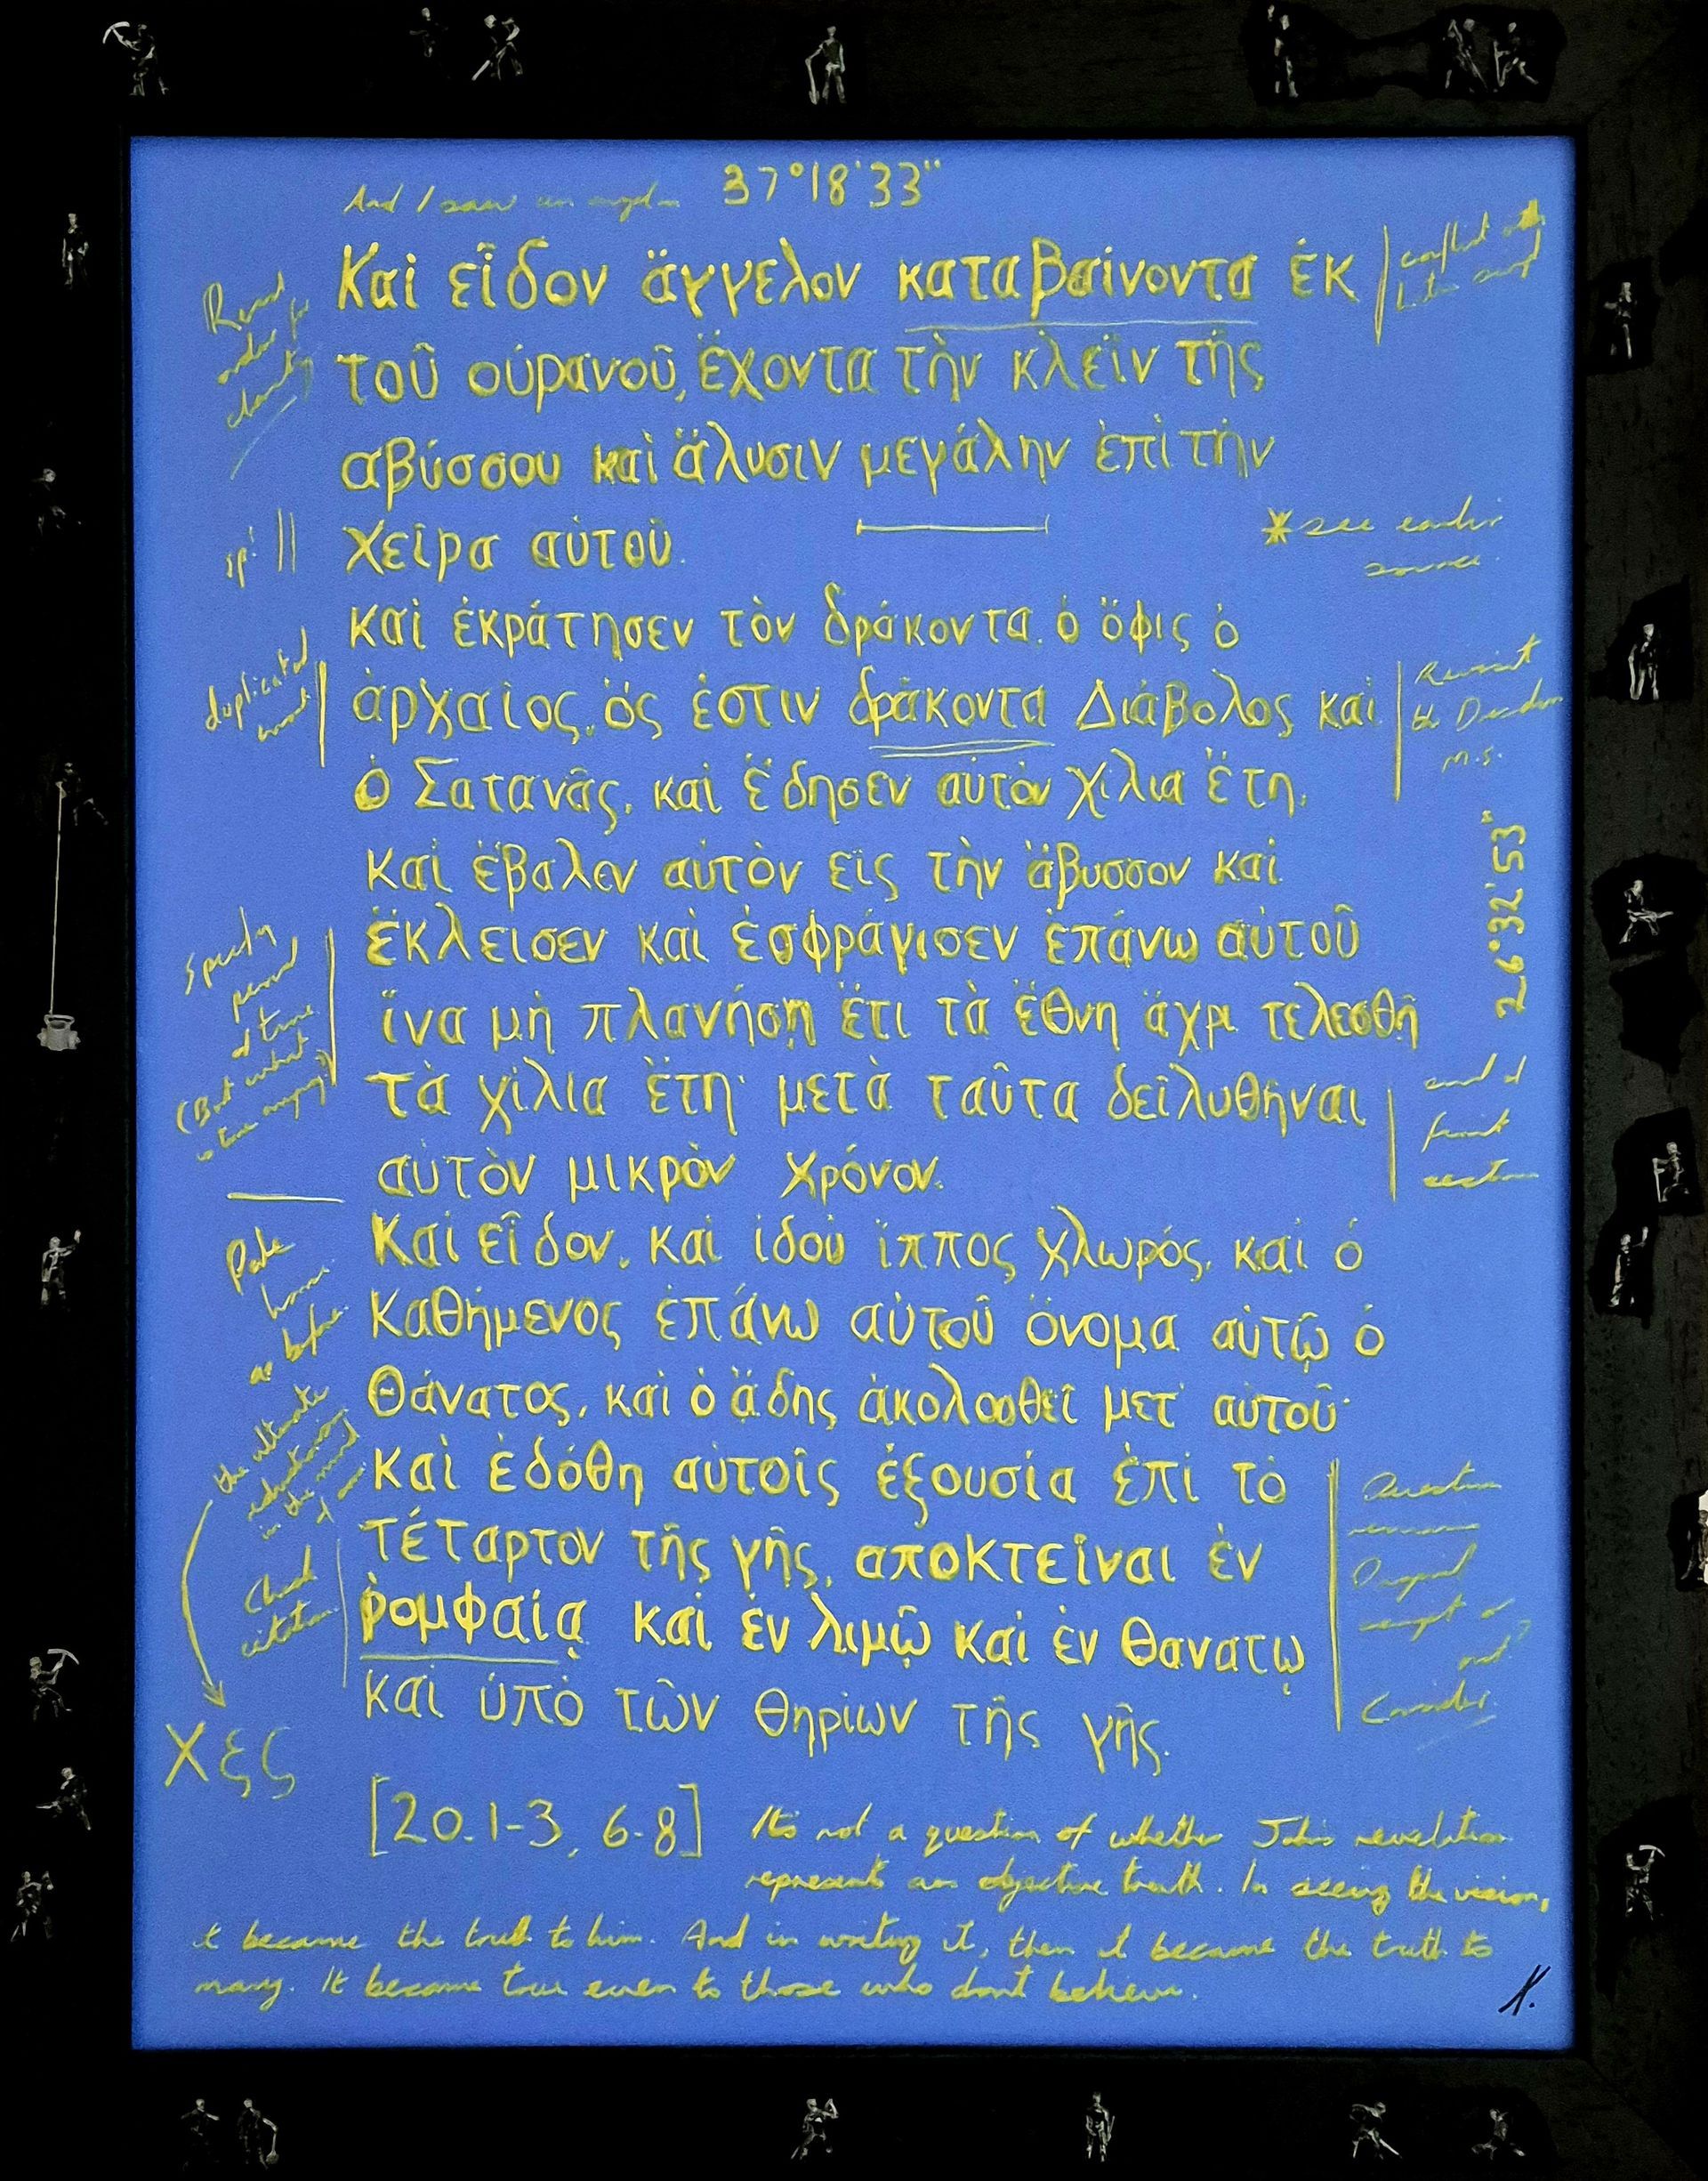 And I saw an angel 37°18'33"
Καὶ εἶδον ἄγγελον καταβαίνοντα ἐκ
τοῦ οὐρανοῦ, ἔχοντα τὴν κλεῖν τῆς
αβύσσου καὶ ἅλυσιν μεγάλην ἐπὶ τὴν
χεῖρα αὐτοῦ.
καὶ ἐκράτησεν τὸν δράκοντα. ὁ ὄφις ὁ
ἀρχαῖος, ὅς ἐστιν δράκοντα Διάβολος καὶ
ὁ Σατανᾶς, καὶ ἔδησεν αὐτὸν χίλια ἔτη,
καὶ ἔβαλεν αὐτὸν εἰς τὴν ἄβυσσον καὶ
ἔκλεισεν καὶ ἐσφράγισεν ἐπάνω αὐτοῦ
ἵνα μὴ πλανήσῃ ἔτι τὰ ἔθνη ἄχρι τελεσθῇ
τὰ χίλια ἔτη· μετὰ ταῦτα δεῖ λυθῆναι
αὐτὸν μικρὸν χρόνον.
Καὶ εἶδον, καὶ ἰδοὺ ἵππος χλωρός, καὶ ὁ
καθήμενος ἐπάνω αὐτοῦ ὄνομα αὐτῷ ὁ
Θάνατος, καὶ ὁ ᾅδης ἀκολουθεῖ μετ' αὐτοῦ·
καὶ ἐδόθη αὐτοῖς ἐξουσία ἐπὶ τὸ
τέταρτον τῆς γῆς, αποκτεῖναι ἐν
ῥομφαίᾳ καὶ ἐν λιμῷ καὶ ἐν θανατῳ
καὶ ὑπὸ τῶν θηρίων τῆς γῆς.
[20.1-3, 6-8]
It's not a question of whether John's revelation
represents an objective truth. In seeing the vision,
it became the truth to him. And in writing it, then it became the truth to
many. It became true even to those who don't believe.
K.
order for
clarity
sp! ||
duplicated
word
Specify
period
of time
(But what
Pale
horse
as before.
the ultimate
in the mind
Check
citation
χξς
conflict
*see earlier
source.
Revisit
the
m.s.
26°32'53"
end of
first
section
Question
Original
or
not?
Consider.